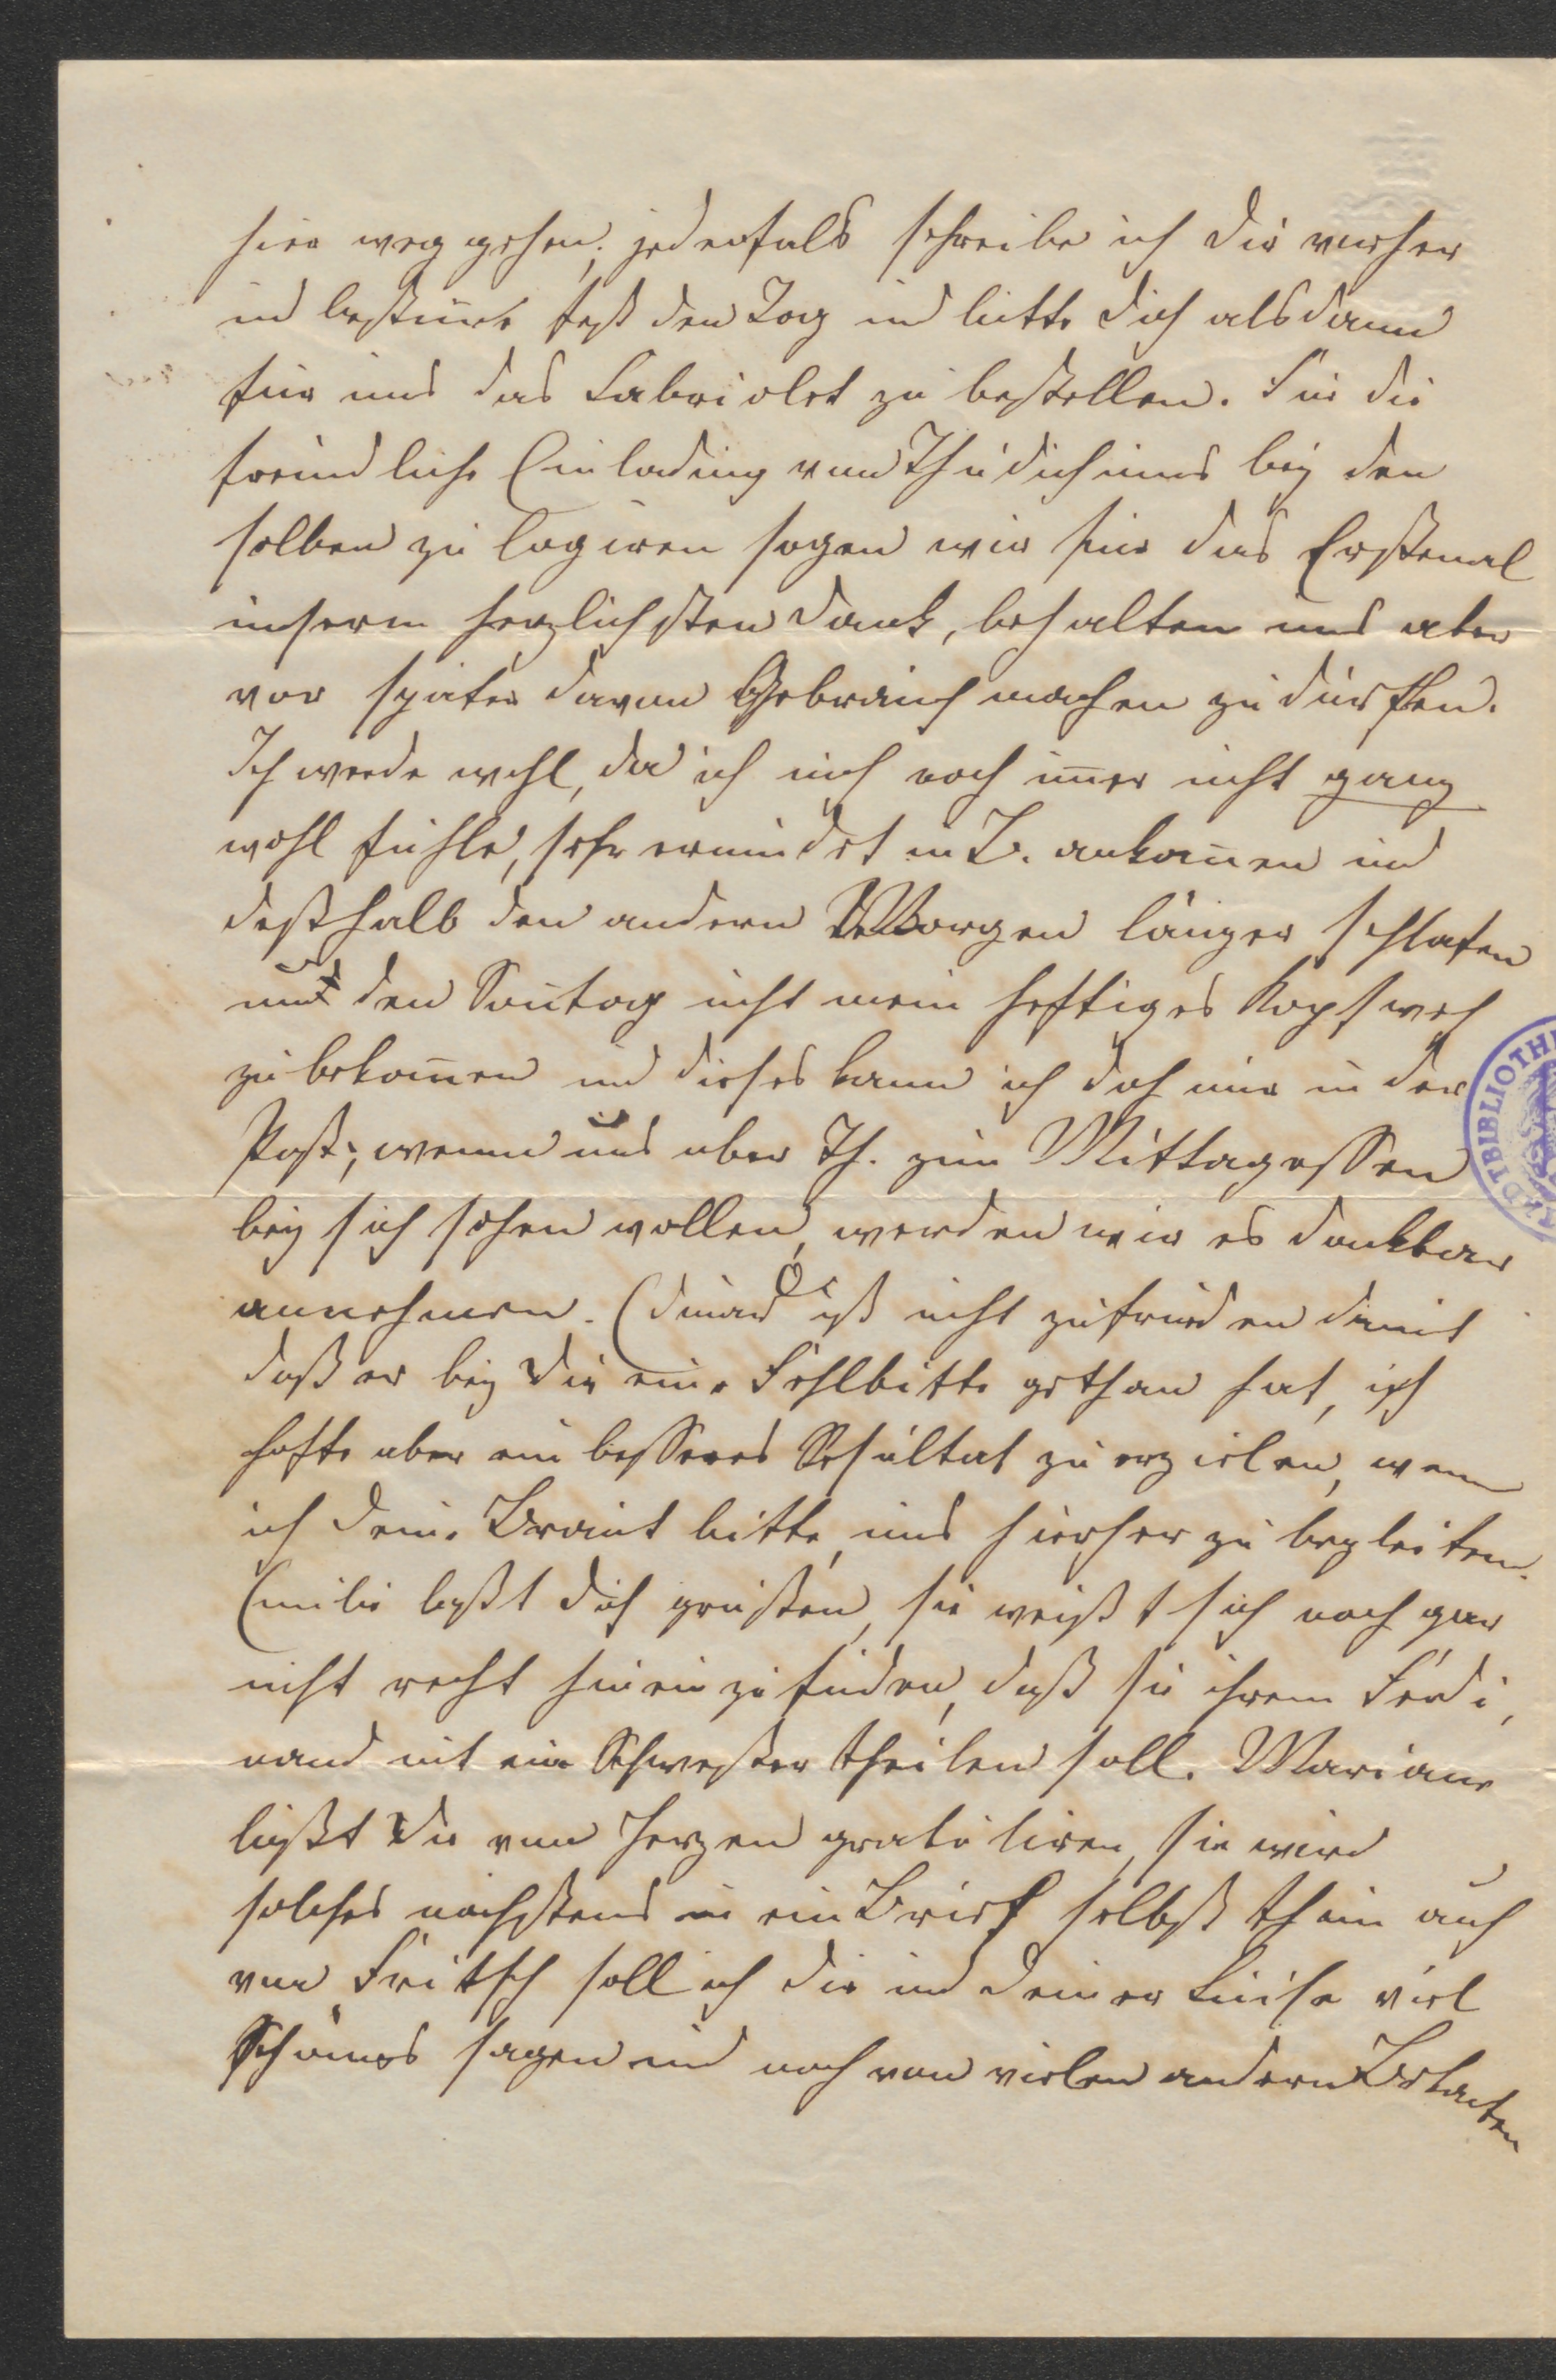 hier weg gehen; jedenfals schreibe ich Dir vorher
und bestim̄e fest den Tag und bitte Dich alsdann
für uns das Cabriolet zu bestellen. Für die
freundliche Einladung von Thudichums bey den
selben zu logiren sagen wir für das Erstemal
unserm herzlichsten Dank, behalten uns aber
vor später davon Gebrauch machen zu dürffen.
Ich werde wohl, da ich mich noch im̄er nicht ganz
wohl fühle, sehr ermüdet in B. ankom̄en und
deßhalb den andern Morgen länger schlafen
um den Son̄tag nicht mein heftiges Kopfweh
zu bekom̄en und dieses kann ich doch nur in der
Post; wenn uns aber Th. zum Mittagessen
bey sich sehen wollen, werden wir es dankbar
annehmen. Eduard ist nicht zufrieden damit
daß er bey Dir eine Fehlbitte gethan hat, ich
hoffe aber ein besseres Resultat zu erzielen, wenn
ich deine Braut bitte, uns hierher zu begleiten.
Emilie läßt dich grüßen, sie weißt sich noch gar
nicht recht hinein zu finden, daß sie ihrem Ferdi,
nand mit eine Schwester theilen soll. Mariane
läßt Dir von Herzen gratuliren, sie wird
solches nächstens in ein Brief selbst thun auch
von Fritsch soll ich dir und deiner Luise viel
Schönes sagen und noch von vielen andern Bekanten
DTBIBLIOTH